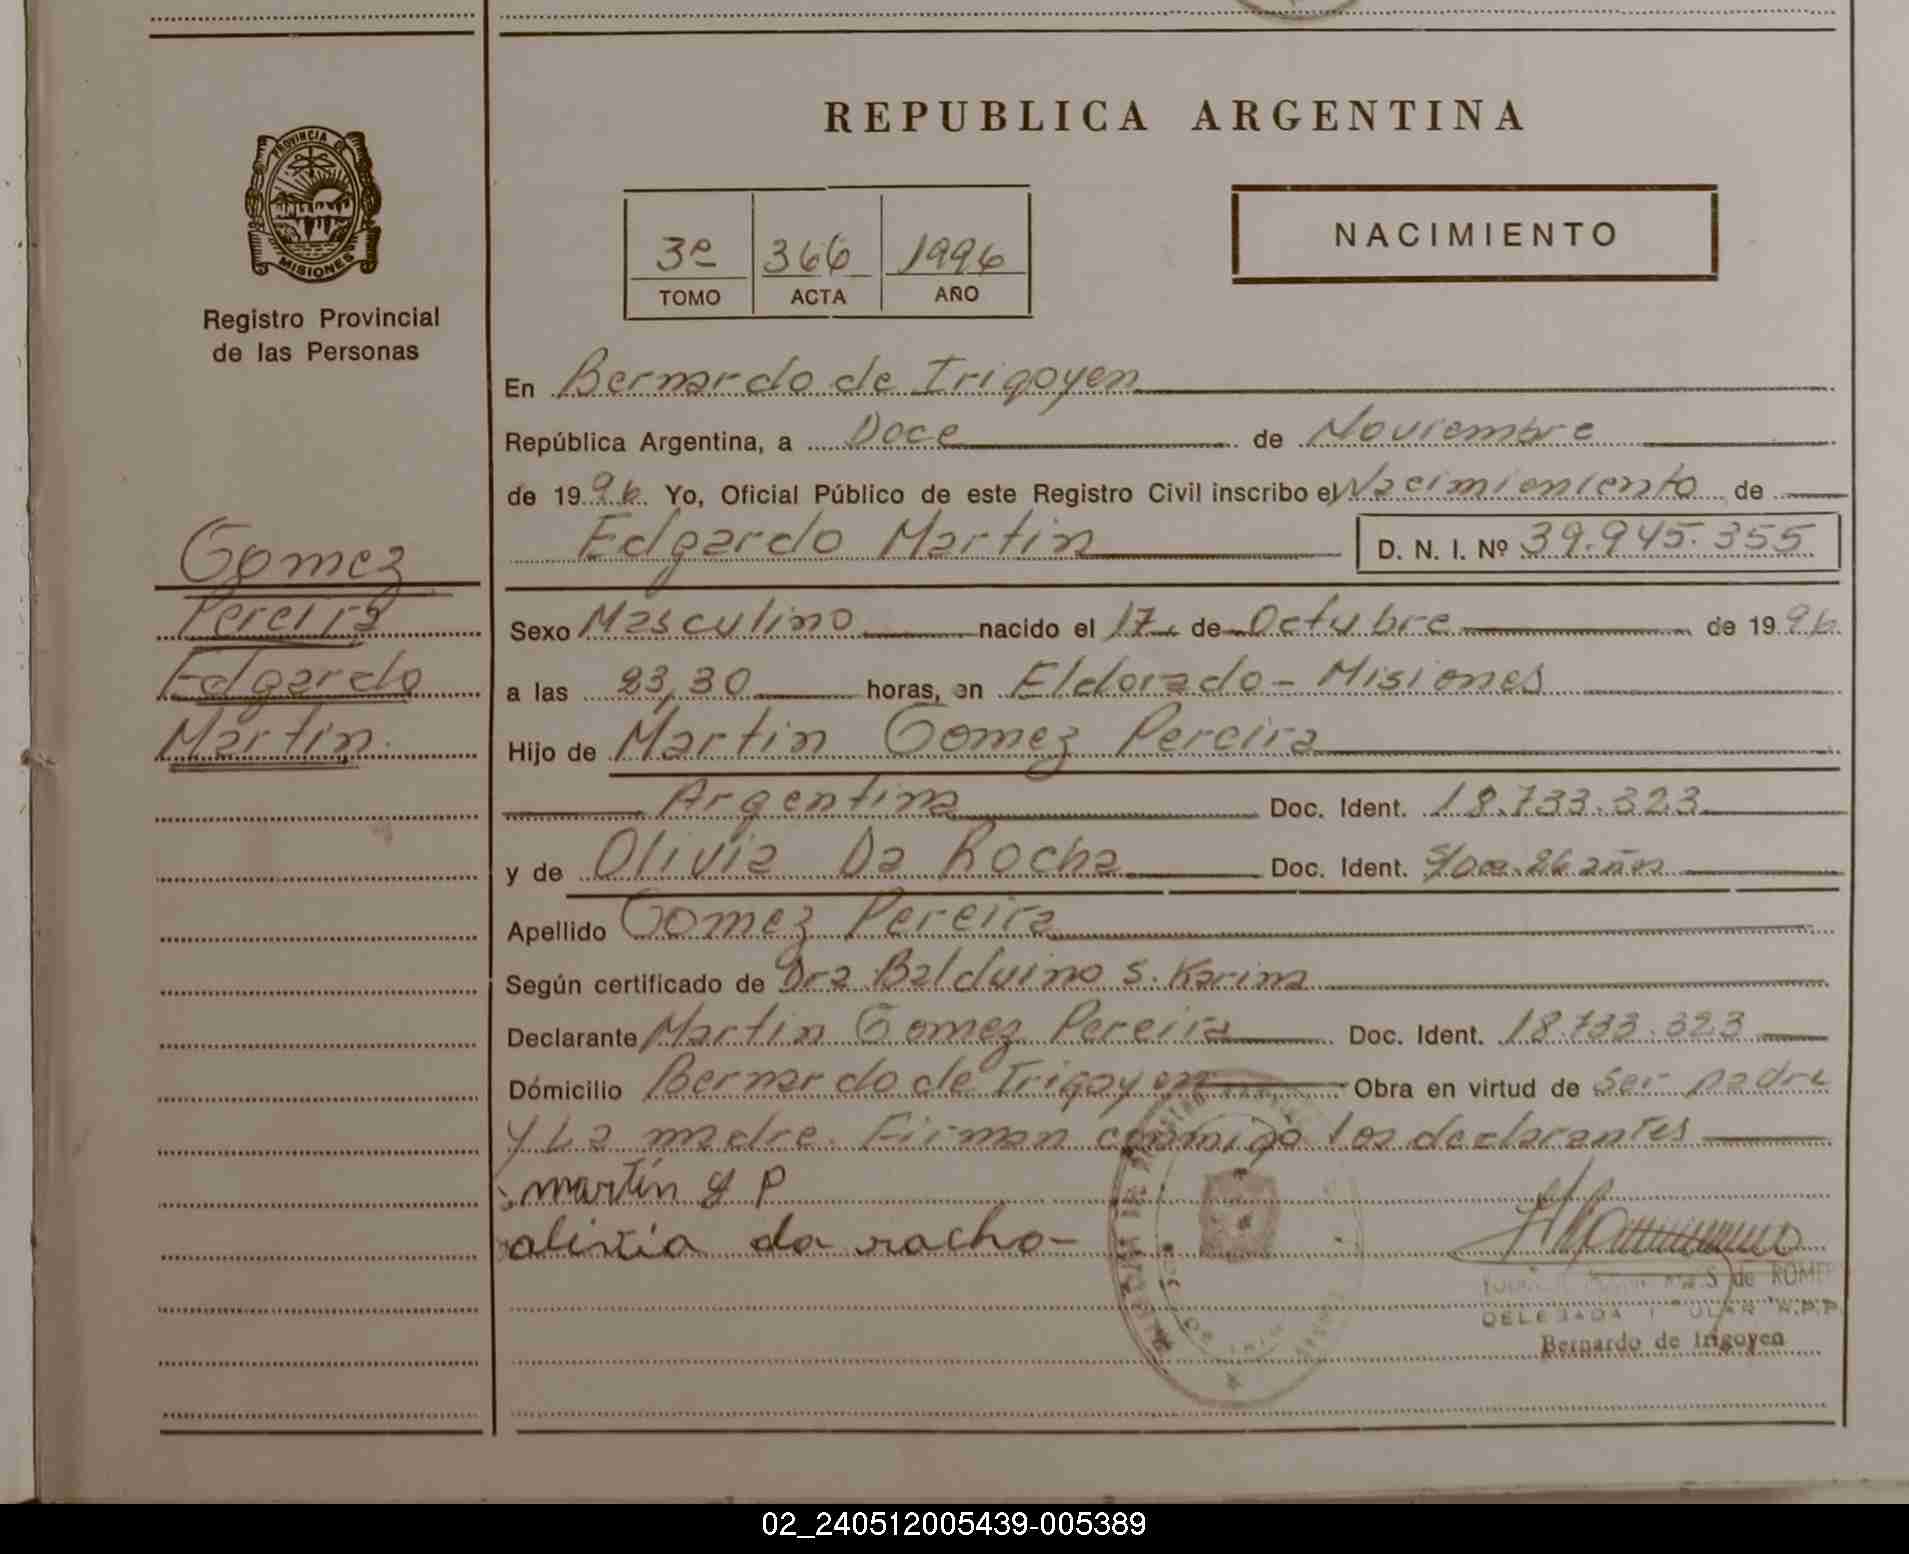 PROVINCIA DE
MISIONES
Registro Provincial
de las Personas
Gomez
Pereira
Edgardo
Martin.
REPUBLICA ARGENTINA
3º 366 1996
TOMO ACTA AÑO
NACIMIENTO
En Bernardo de Irigoyen
República Argentina, a Doce de Noviembre
de 1996 Yo, Oficial Público de este Registro Civil inscribo el Nacimieniento de
Edgardo Martin D. N. I. Nº 39.945.355
Sexo Masculino nacido el 17 de Octubre de 1996
a las 23,30 horas, en Eldorado - Misiones
Hijo de Martin Gomez Pereira
Argentina Doc. Ident. 18.733.323
y de Olivia Da Rocha Doc. Ident. S/Doc. 26 años
Apellido Gomez Pereira
Según certificado de Dra Balduino S. Karina
Declarante Martin Gomez Pereira Doc. Ident. 18.733.323
Dómicilio Bernardo de Irigoyen Obra en virtud de ser padre
y La madre. Firman conmigo los declarantes
martin g p
alivia da racho-
S de ROME
DELEGADA R.P.P.
Bernardo de Irigoyen
02_240512005439-005389